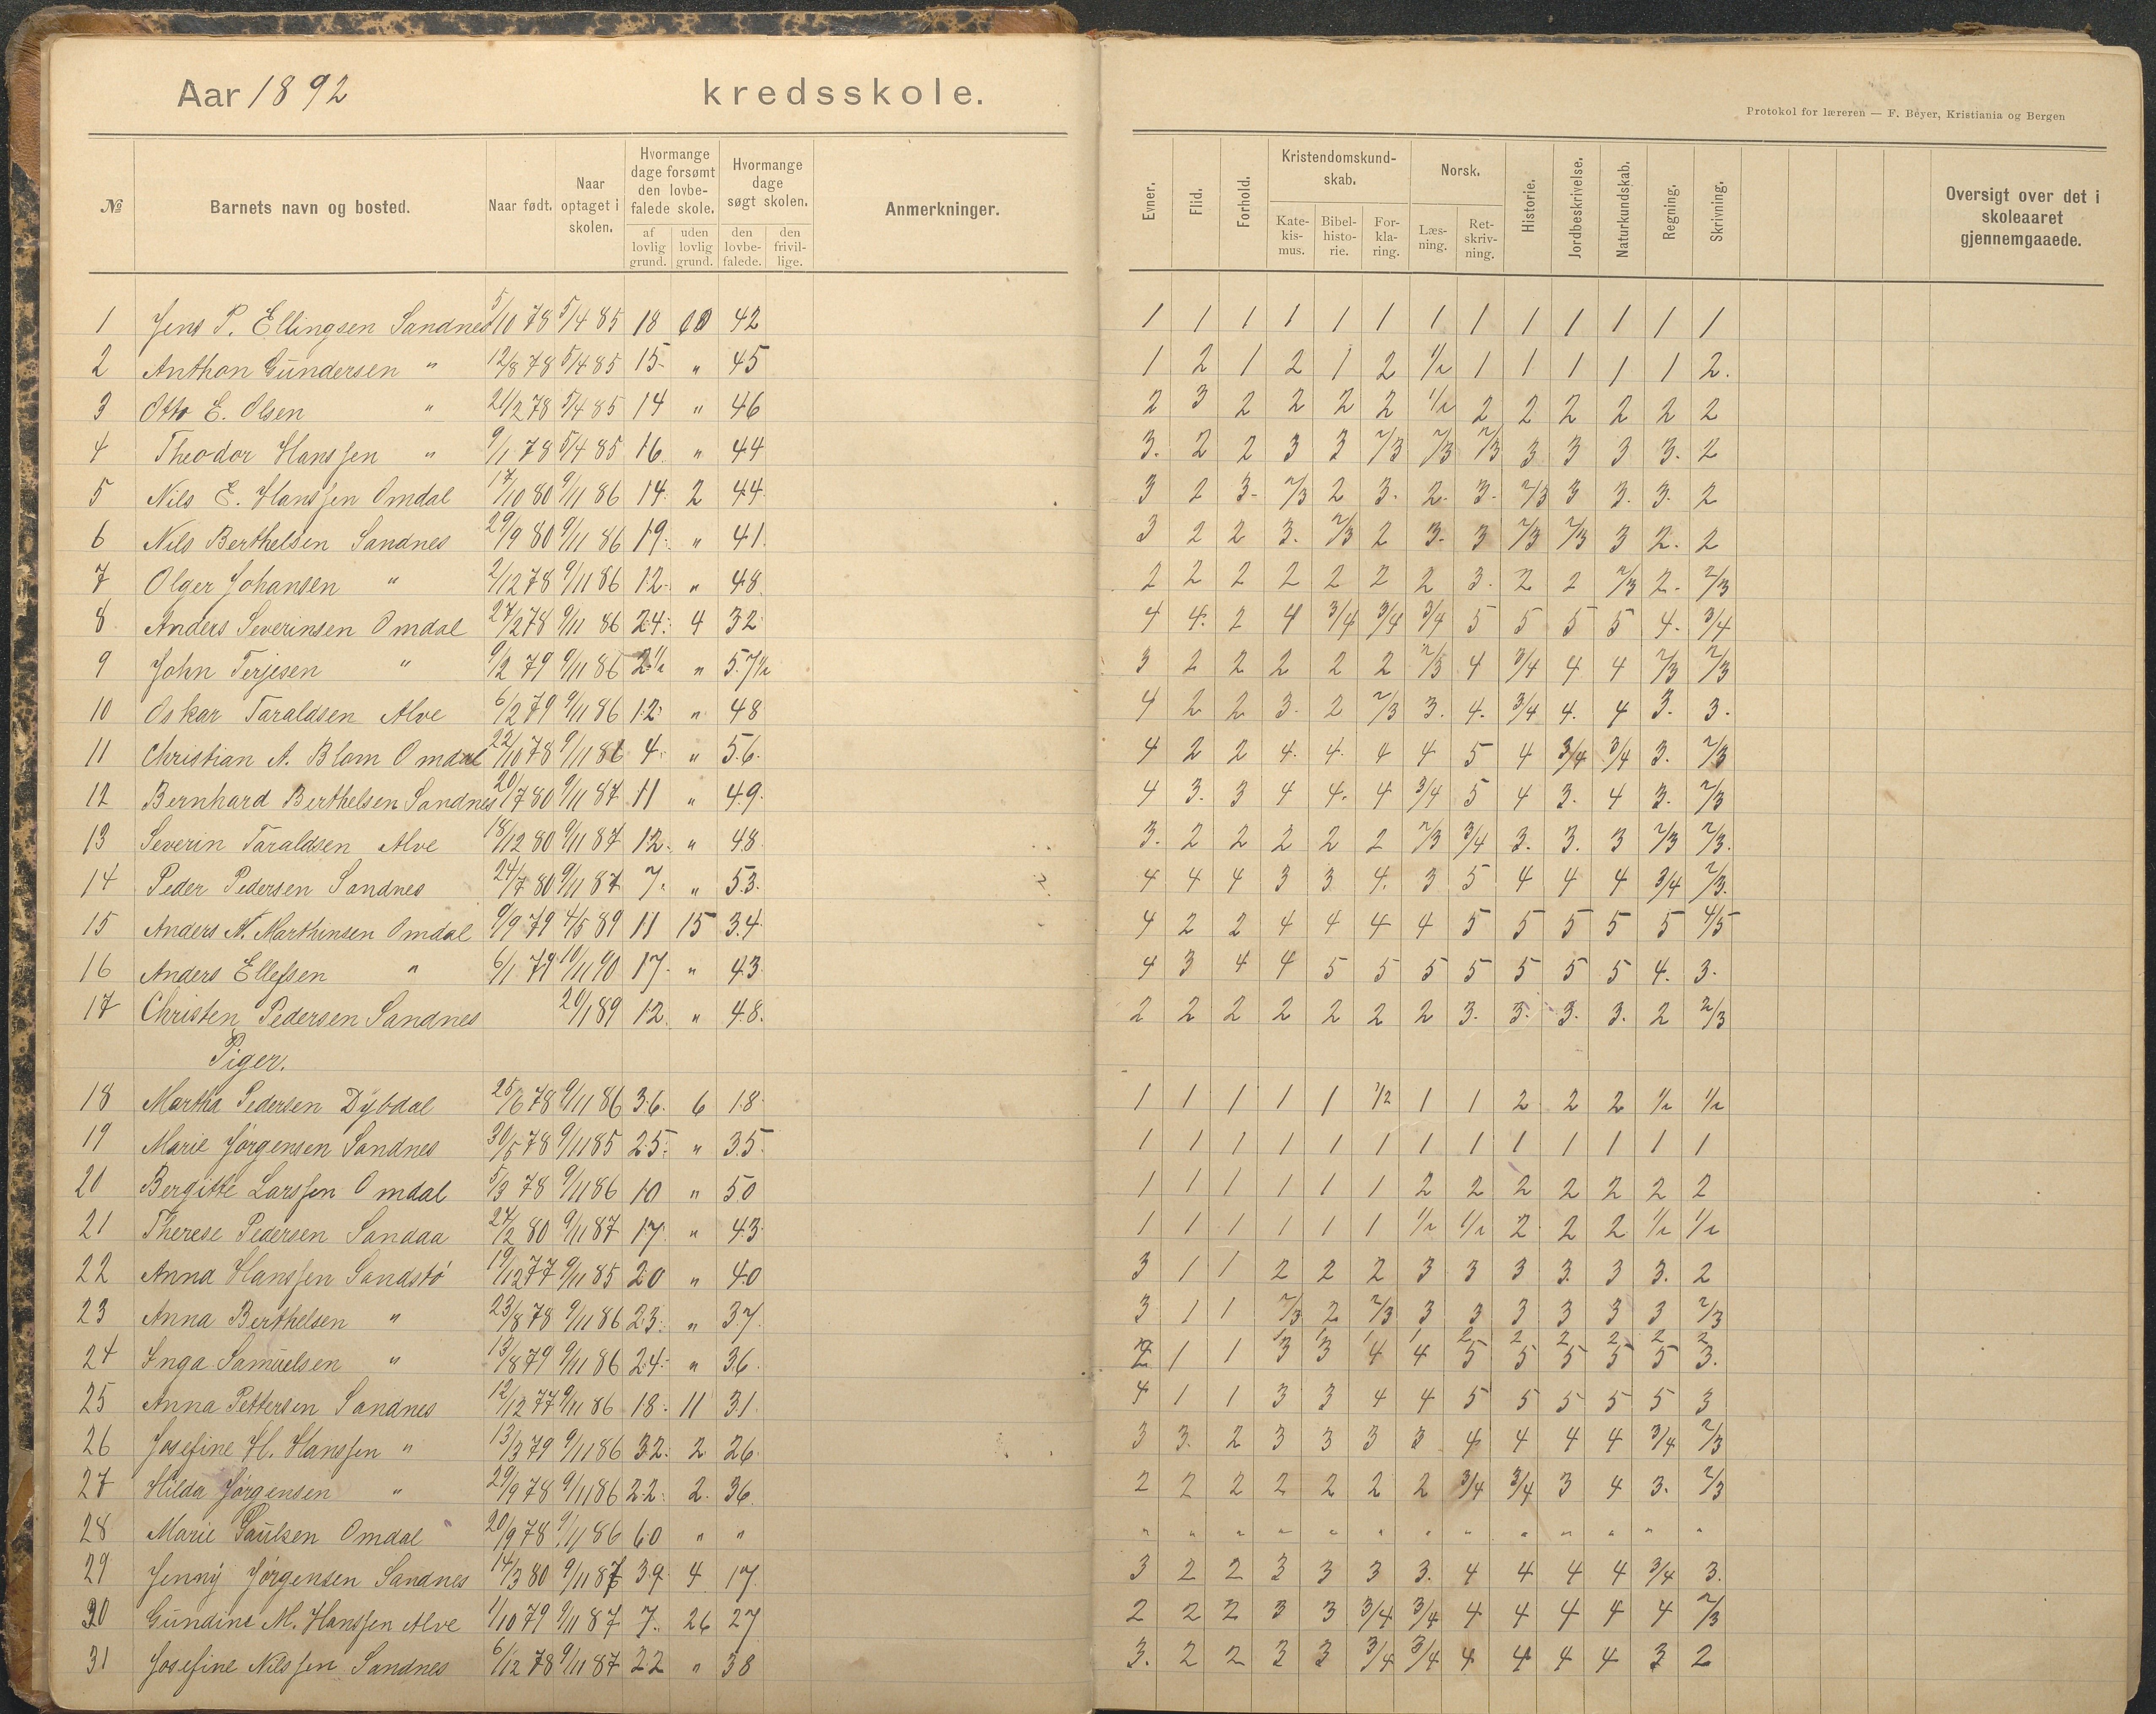 Aar 1892 kredsskole.
Protokol for læreren — F. Beyer, Kristiania og Bergen
№ Barnets navn og bosted. Naar født. Naar optaget i skolen. Hvormange dage forsømt den lovbefalede skole. af lovlig grund. uden lovlig grund. Hvormange dage søgt skolen. den lovbefalede. den frivillige. Anmerkninger. Evner. Flid. Forhold. Kristendomskundskab. Katekismus. Bibelhistorie. Forklaring. Norsk. Læsning. Retskrivning. Historie. Jordbeskrivelse. Naturkundskab. Regning. Skrivning. Oversigt over det i skoleaaret gjennemgaaede.
1 Jens P. Ellingsen Sandnes 5/10 78 5/4 85 18 42 1 1 1 1 1 1 1 1 1 1 1 1 1
2 Anthon Gundersen " 12/8 78 5/4 85 15 " 45 1 2 1 2 1 2 1/2 1 1 1 1 1 2.
3 Otto E. Olsen " 21/2 78 5/4 85 14 " 46 2 3 2 2 2 2 1/2 2 2 2 2 2 2
4 Theodor Hanssen " 9/1 78 5/4 85 16 " 44 3. 2 2 3 3 2/3 2/3 2/3 3 3 3 3. 2
5 Nils E. Hanssen Omdal 17/10 80 9/11 86 14 2 44 3 2 3. 2/3 2 3. 2. 3. 2/3 3 3. 3. 2
6 Nils Berthelsen Sandnes 29/9 80 9/11 86 19 " 41 3 2 2 3. 2/3 2 3. 3 2/3 2/3 3 2. 2
7 Olger Johansen " 2/12 78 9/11 86 12 " 48 2 2 2 2 2 2 2 3. 2 2 2/3 2. 2/3
8 Anders Severinsen Omdal 27/2 78 9/11 86 24 4 32 4 4. 2 4 3/4 3/4 3/4 5 5 5 5 4. 3/4
9 John Terjesen " 9/2 79 9/11 86 2 1/2 " 57 1/2 3 2 2 2 2 2 2/3 4 3/4 4 4 2/3 2/3
10 Oskar Taraldsen Alve 6/2 79 9/11 86 12 " 48 4 2 2 3. 2 2/3 3. 4. 3/4 4. 4 3. 3.
11 Christian A. Blom Omdal 22/10 78 9/11 86 4 " 56 4 2 2 4. 4. 4 4 5 4 3/4 3/4 3. 2/3
12 Bernhard Berthelsen Sandnes 20/7 80 9/11 87 11 " 49 4 3. 3 4 4. 4 3/4 5 4 3. 4 3. 2/3
13 Severin Taraldsen Alve 18/12 80 9/11 87 12 " 48 3. 2 2 2 2 2 2/3 3/4 3. 3. 3 2/3 2/3.
14 Peder Pedersen Sandnes 24/7 80 9/11 87 7 " 53 4 4 4 3 3 4. 3 5 4 4 4 3/4 2/3.
15 Anders N. Marthinsen Omdal 9/9 79 4/5 89 11 15 34 4 2 2 4 4 4 4 5 5 5 5 5 4/5
16 Anders Ellefsen " 6/1 79 10/11 90 17 " 43 4 3 4 4 5 5 5 5 5 5 5 4. 3.
17 Christen Pedersen Sandnes 20/1 89 12 " 48 2 2 2 2 2 2 2 3. 3. 3. 3. 2 2/3
Piger.
18 Martha Pedersen Dybdal 25/6 78 9/11 86 36 6 18 1 1 1 1 1 1/2 1 1 2 2 2 1/2 1/2
19 Marie Jørgensen Sandnes 30/5 78 9/11 85 25 " 35 1 1 1 1 1 1 1 1 1 1 1 1 1
20 Bergitte Larssen Omdal 5/3 78 9/11 86 10 " 50 1 1 1 1 1 1 2 2 2 2 2 2 2
21 Therese Pedersen Sandaa 24/2 80 9/11 87 17 " 43 1 1 1 1 1 1 1/2 1/2 2 2 2 1/2 1/2
22 Anna Hanssen Sandstø 19/12 77 9/11 85 20 " 40 3 1 1 2 2 2 3 3 3 3. 3 3. 2
23 Anna Berthelsen " 23/8 78 9/11 86 23 " 37 3 1 1 2/3 2 2/3 3 3 3 3 3 3 2/3
24 Inga Samuelsen " 13/8 79 9/11 86 24 " 36 1 1 3 3 4 4 5 5 5 5 5 3.
25 Anna Pettersen Sandnes 12/12 77 9/11 86 18 11 31 4 1 1 3 3 4 4 5 5 5 5 5 3
26 Josefine H. Hanssen " 13/3 79 9/11 86 32 2 26 3 3. 2 3 3 3 3 4 4 4 4 3/4 2/3
27 Hilda Jørgensen " 29/9 78 9/11 86 22 2 36 2 2 2 2 2 2 2 3/4 3/4 3 4 3. 2/3
28 Marie Paulsen Omdal 20/9 78 9/11 86 60 " " " " " " " " " " " " " " "
29 Jenny Jørgensen Sandnes 14/3 80 9/11 87 39 4 17 3 2 2 3 3 3 3. 4 4 4 4 3/4 3.
30 Gundine M. Hanssen Alve 1/10 79 9/11 87 7 26 27 2 2 2 3 3 3/4 3/4 4 4 4 4 4 2/3
31 Josefine Nilssen Sandnes 6/12 78 9/11 87 22 " 38 3. 2 2 3 3 3/4 3/4 4 4 4 4 3 2